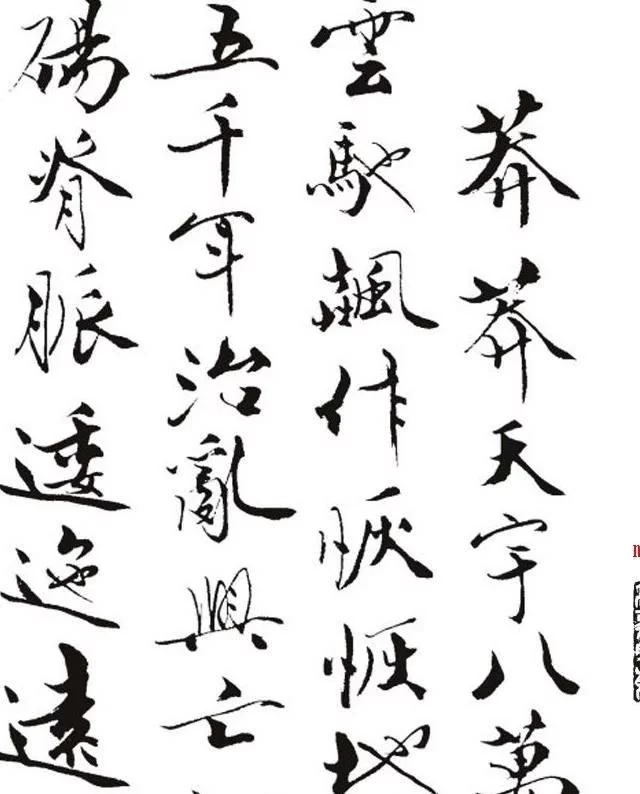 莽莽天宇八萬
雲馳飆作恢恢地
五千年治亂興亡
碭脊脈逶迤遠